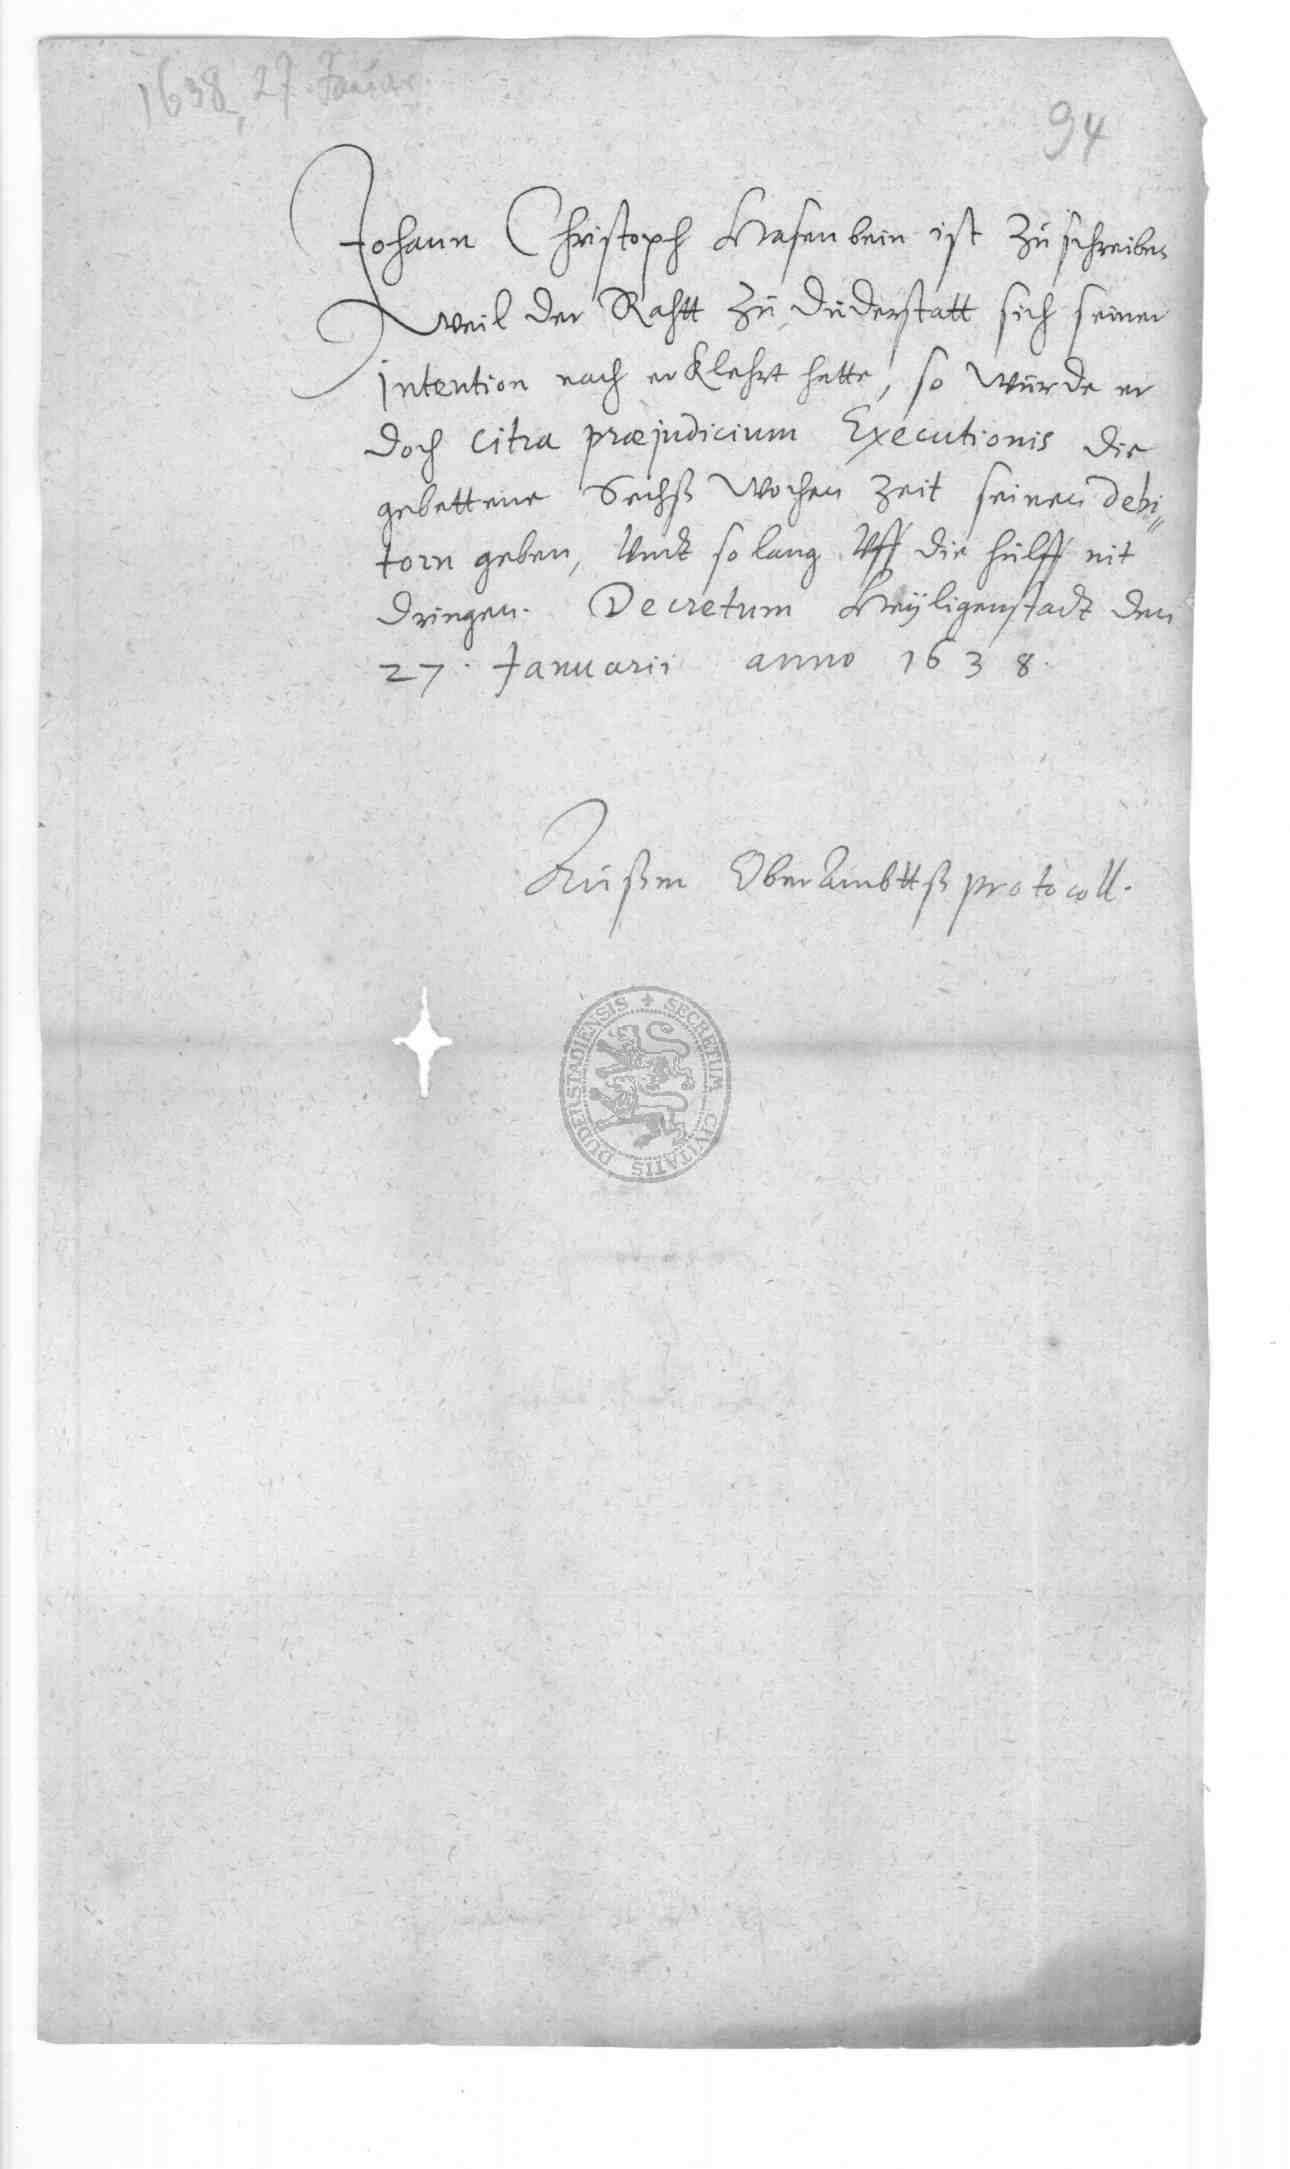 1638, 27. Januar
94
Johann Christoph Hasenbein ist zu schreiben
Weil der Rahtt zu Duderstatt sich seiner
Intention nach erklehrt hette, so würde er
doch citra præjudicium Executionis die
gebettene Sechß Wochen Zeit seinen debi⸗
torn geben, Undt so lang Uff die hülff nit
dringen. Decretum Heÿligenstadt den
27. Januarii anno 1638.
Ober Ambttß protocoll.
SECRETUM CIVITATIS DUDERSTADIENSIS